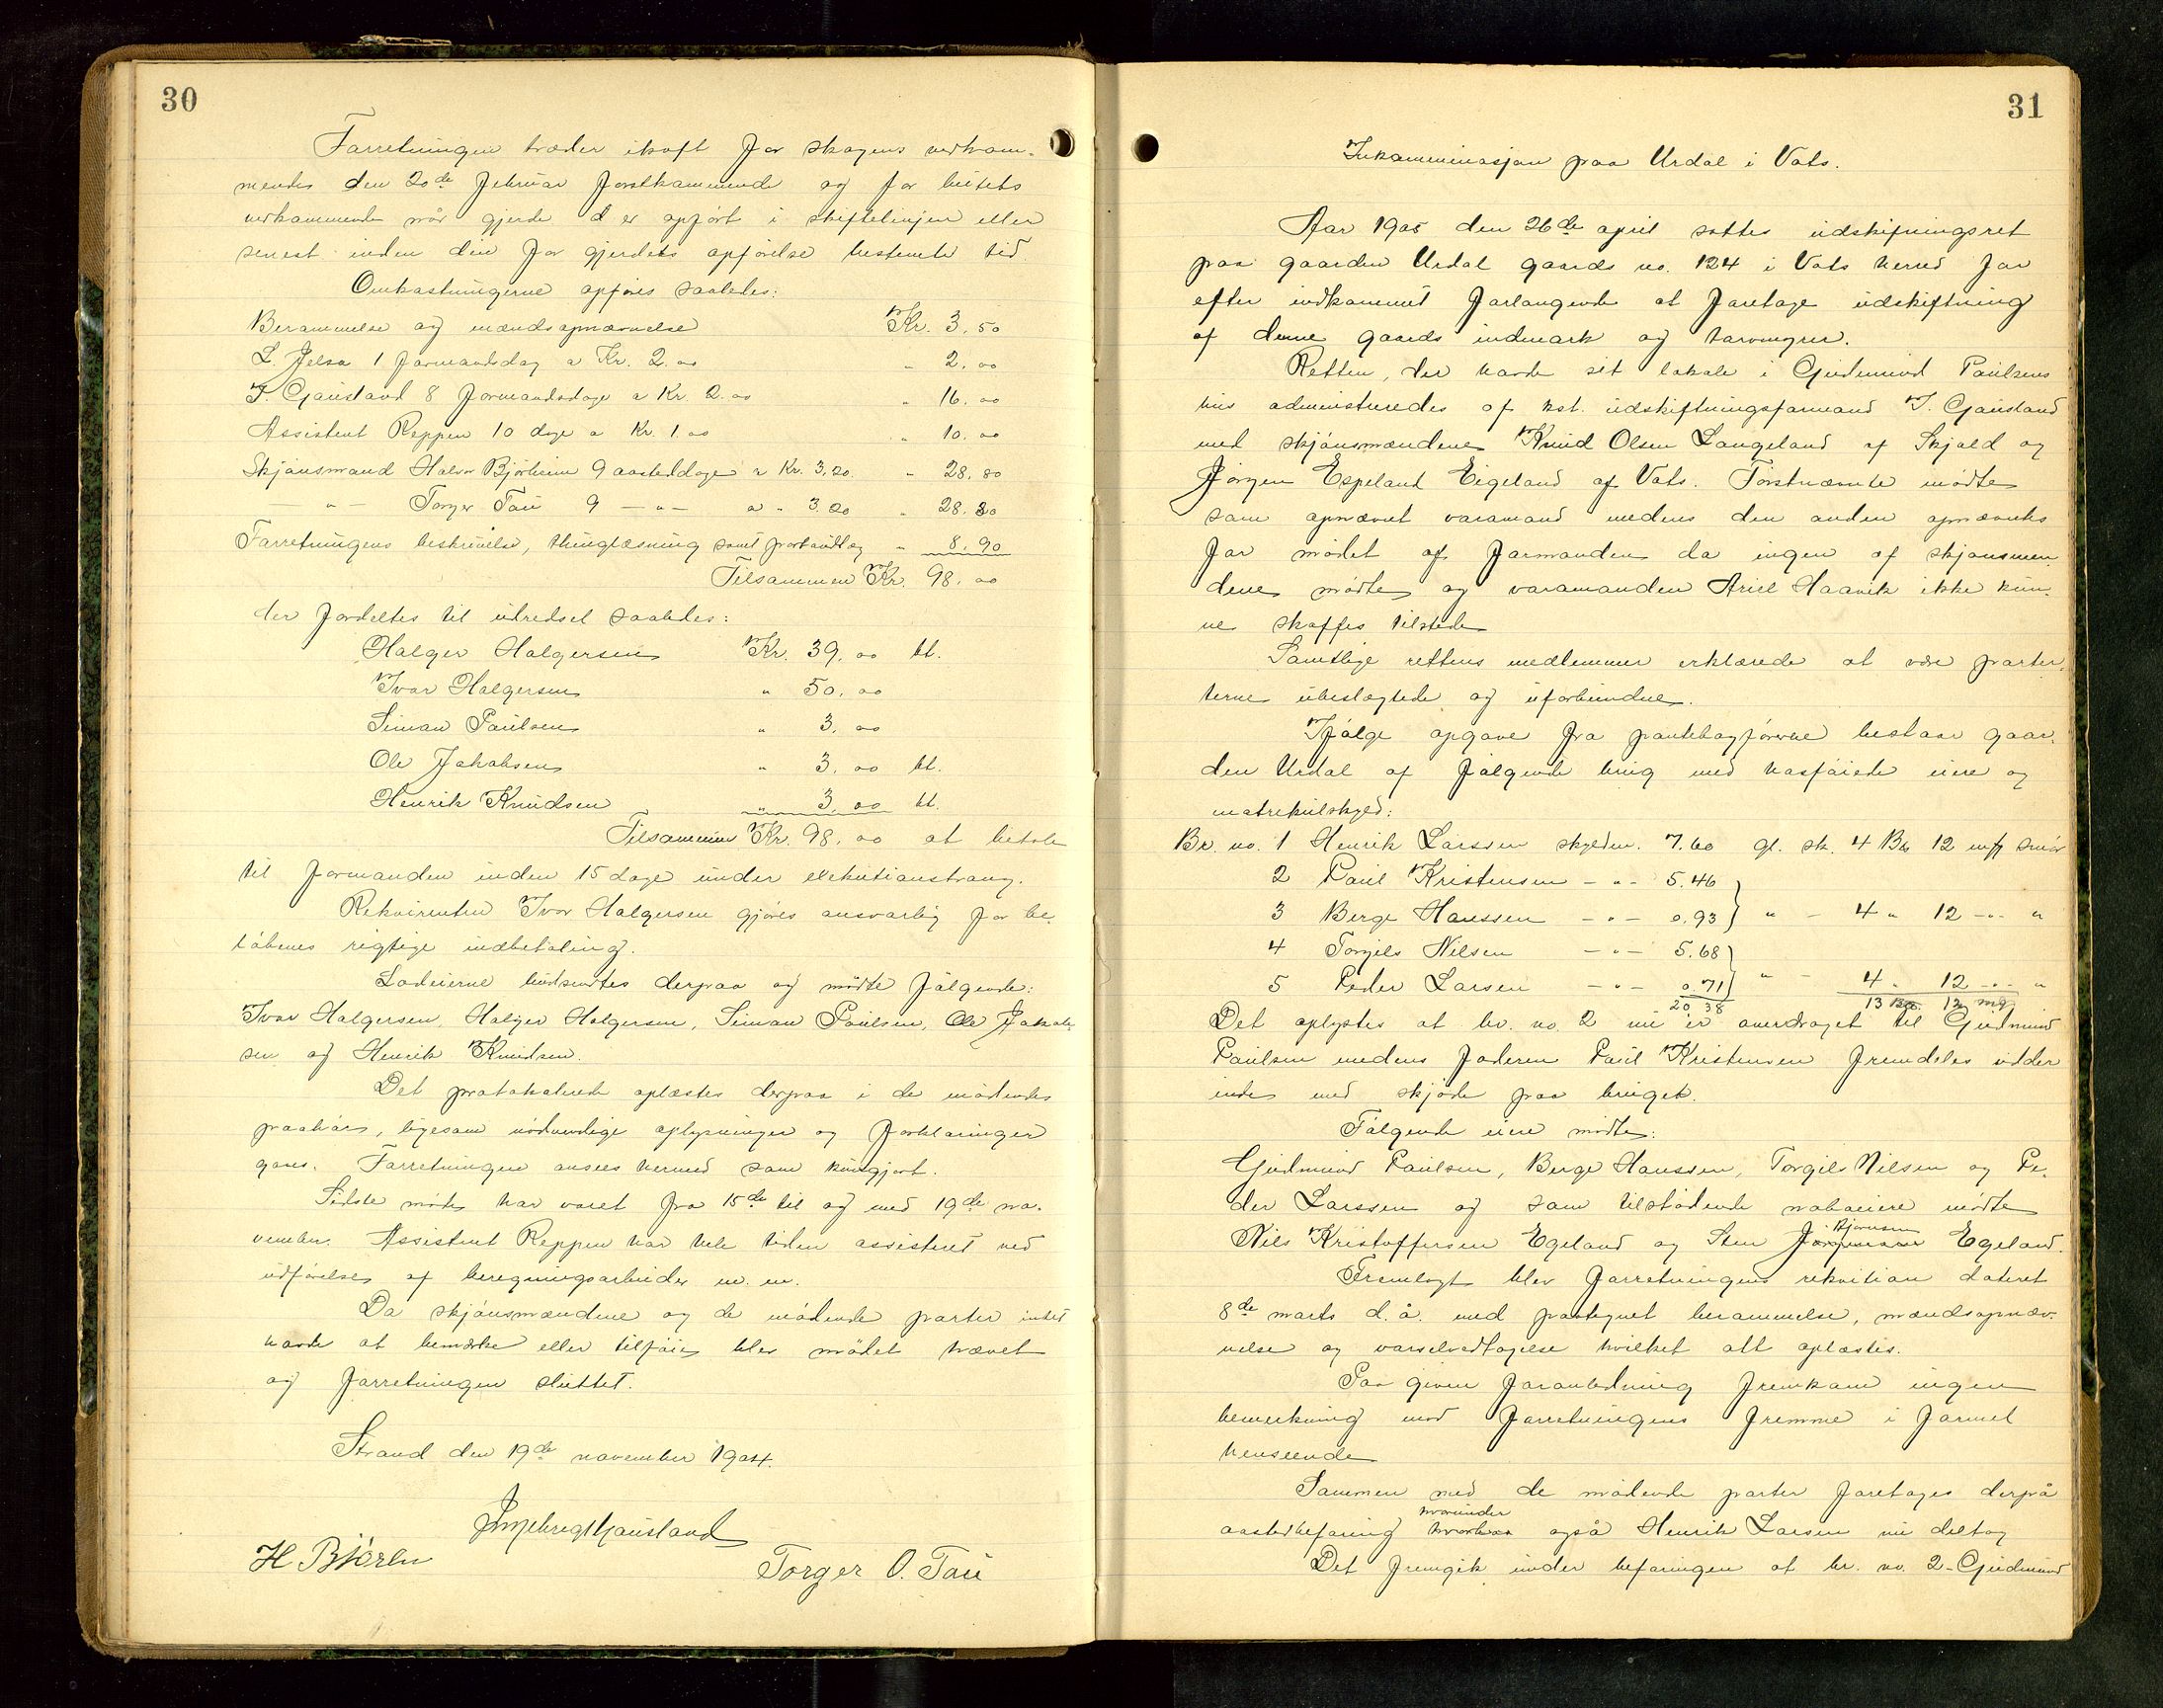 30
Forretningen træder ikraft for skogens vedkom-
mende den 20de februar førstkommende og for beitets
vedkommende når gjerde d er opført i skiftelinjen eller
senest inden den for gjerdets opførelse bestemte tid.
Omkostningerne opføres saaledes:
Berammelse og mændsopnævnelse Kr. 3.50
L. Jelsa 1 formandsdag a Kr. 2.00 " 2.00
T. Gausland 8 formandsdage a Kr. 2.00 " 16.00
Assistent Reppen 10 dage a Kr. 1.00 " 10.00
Skjønsmand Halvor Bjørheim 9 aastedsdage a Kr. 3.20 " 28.80
— " — Torger Tau 9 — " — a " 3.20 " 28.80
Forretningens beskrivelse, thinglæsning samt " 8.90
Tilsammen Kr. 98.00
der fordeltes til udredsel saaledes:
Holger Holgersen Kr. 39.00 bt.
Ivar Holgersen " 50.00
Simon Paulsen " 3.00
Ole Jakobsen " 3.00 bt.
Henrik Knudsen " 3.00 bt.
Tilsammen Kr. 98.00 at betale
til formanden inden 15 dage under eksekutionstvang.
Rekvirenten Ivar Holgersen gjøres ansvarlig for be-
løbenes rigtige indbetaling.
Lodeierne indkaldtes derpaa og mødte følgende:
Ivar Holgersen, Holger Holgersen, Simon Paulsen, Ole Jakob-
sen og Henrik Knudsen.
Det protokolerede oplæstes derpaa i de mødendes
paahør, ligesom nødvendige oplysninger og forklaringer
gaves. Forretningen ansees hermed som kundgjort.
Sidste møde har varet fra 15de til og med 19de no-
vember. Assistent Reppen har hele tiden assisteret ved
udførelse af beregningsarbeider m. m.
Da skjønsmændene og de mødende parter intet
havde at bemærke eller tilføie blev mødet hævet
og forretningen sluttet.
Strand den 19de november 1904.
Gausland
H Bjørhm
Torger O. Tau
31
paa Urdal i Vats.
Aar 1905 den 26de april sattes udskifningsret
paa gaarden Urdal gaards no. 124 i Vats herred for
efter indkommet forlangende at foretage udskiftning
af denne gaards indmark og havninger.
Retten, der havde sit lokale i Gudmund Paulsens
hus administreredes af kst. udskiftningsformand T. Gausland
med skjønsmændene Knud Olsen Langeland af Skjold og
Jørgen Espeland Eigeland af Vats. Førstnævnte mødte
som opnævnt varamand medens den anden opnævntes
før mødet af formanden da ingen af skjønsmæn-
dene mødte og varamanden Ariel Haavik ikke kun-
ne skaffes tilstede
Samtlige rettens medlemmer erklærede at være parter-
terne ubeslægtede og uforbundne.
Ifølge opgave fra pantebogføreren bestaar gaar-
den Urdal af følgende brug med hosføiede eiere og
matrikulskyld:
Br. no. 1 Henrik Larssen skylden. 7.60 gl. sk. 4 Bb 12 mk smør
2 Paul Kristensen — " — 5.46
3 Berge Hanssen — " — 0.93 " — 4 " 12 — " — "
4 Torgils Nilsen — " — 5.68
5 Peder Larsen — " — 0.71 " — 4 " 12 — " — "
20 38 13 Bb. 12 mg
Det oplystes at br. no. 2 nu er overdraget til Gudmund
Paulsen medens faderen Paul Kristensen fremdeles sidder
inde med skjøde paa bruget.
Følgende eiere mødte:
Gudmund Paulsen, Berge Hanssen, Torgils Nilsen og Pe-
der Larssen og som tilstødende naboeiere mødte
Nils Kristoffersen Egeland og Sten Bjørnsen Egeland.
Fremlagt blev forretningens rekvition dateret
8de marts d. å. med paategnet berammelse, mændsopnæv-
nelse og varselvedtagelse hvilket alt oplæstes.
Paa given foranledning fremkom ingen
bemerkning mod forretningens fremme i formel
henseende
Sammen med de mødende parter foretages derpå
aastedbefaring hvorunder også Henrik Larsen nu deltog
Det fremgik under befaringen at br. no. 2 - Gudmund